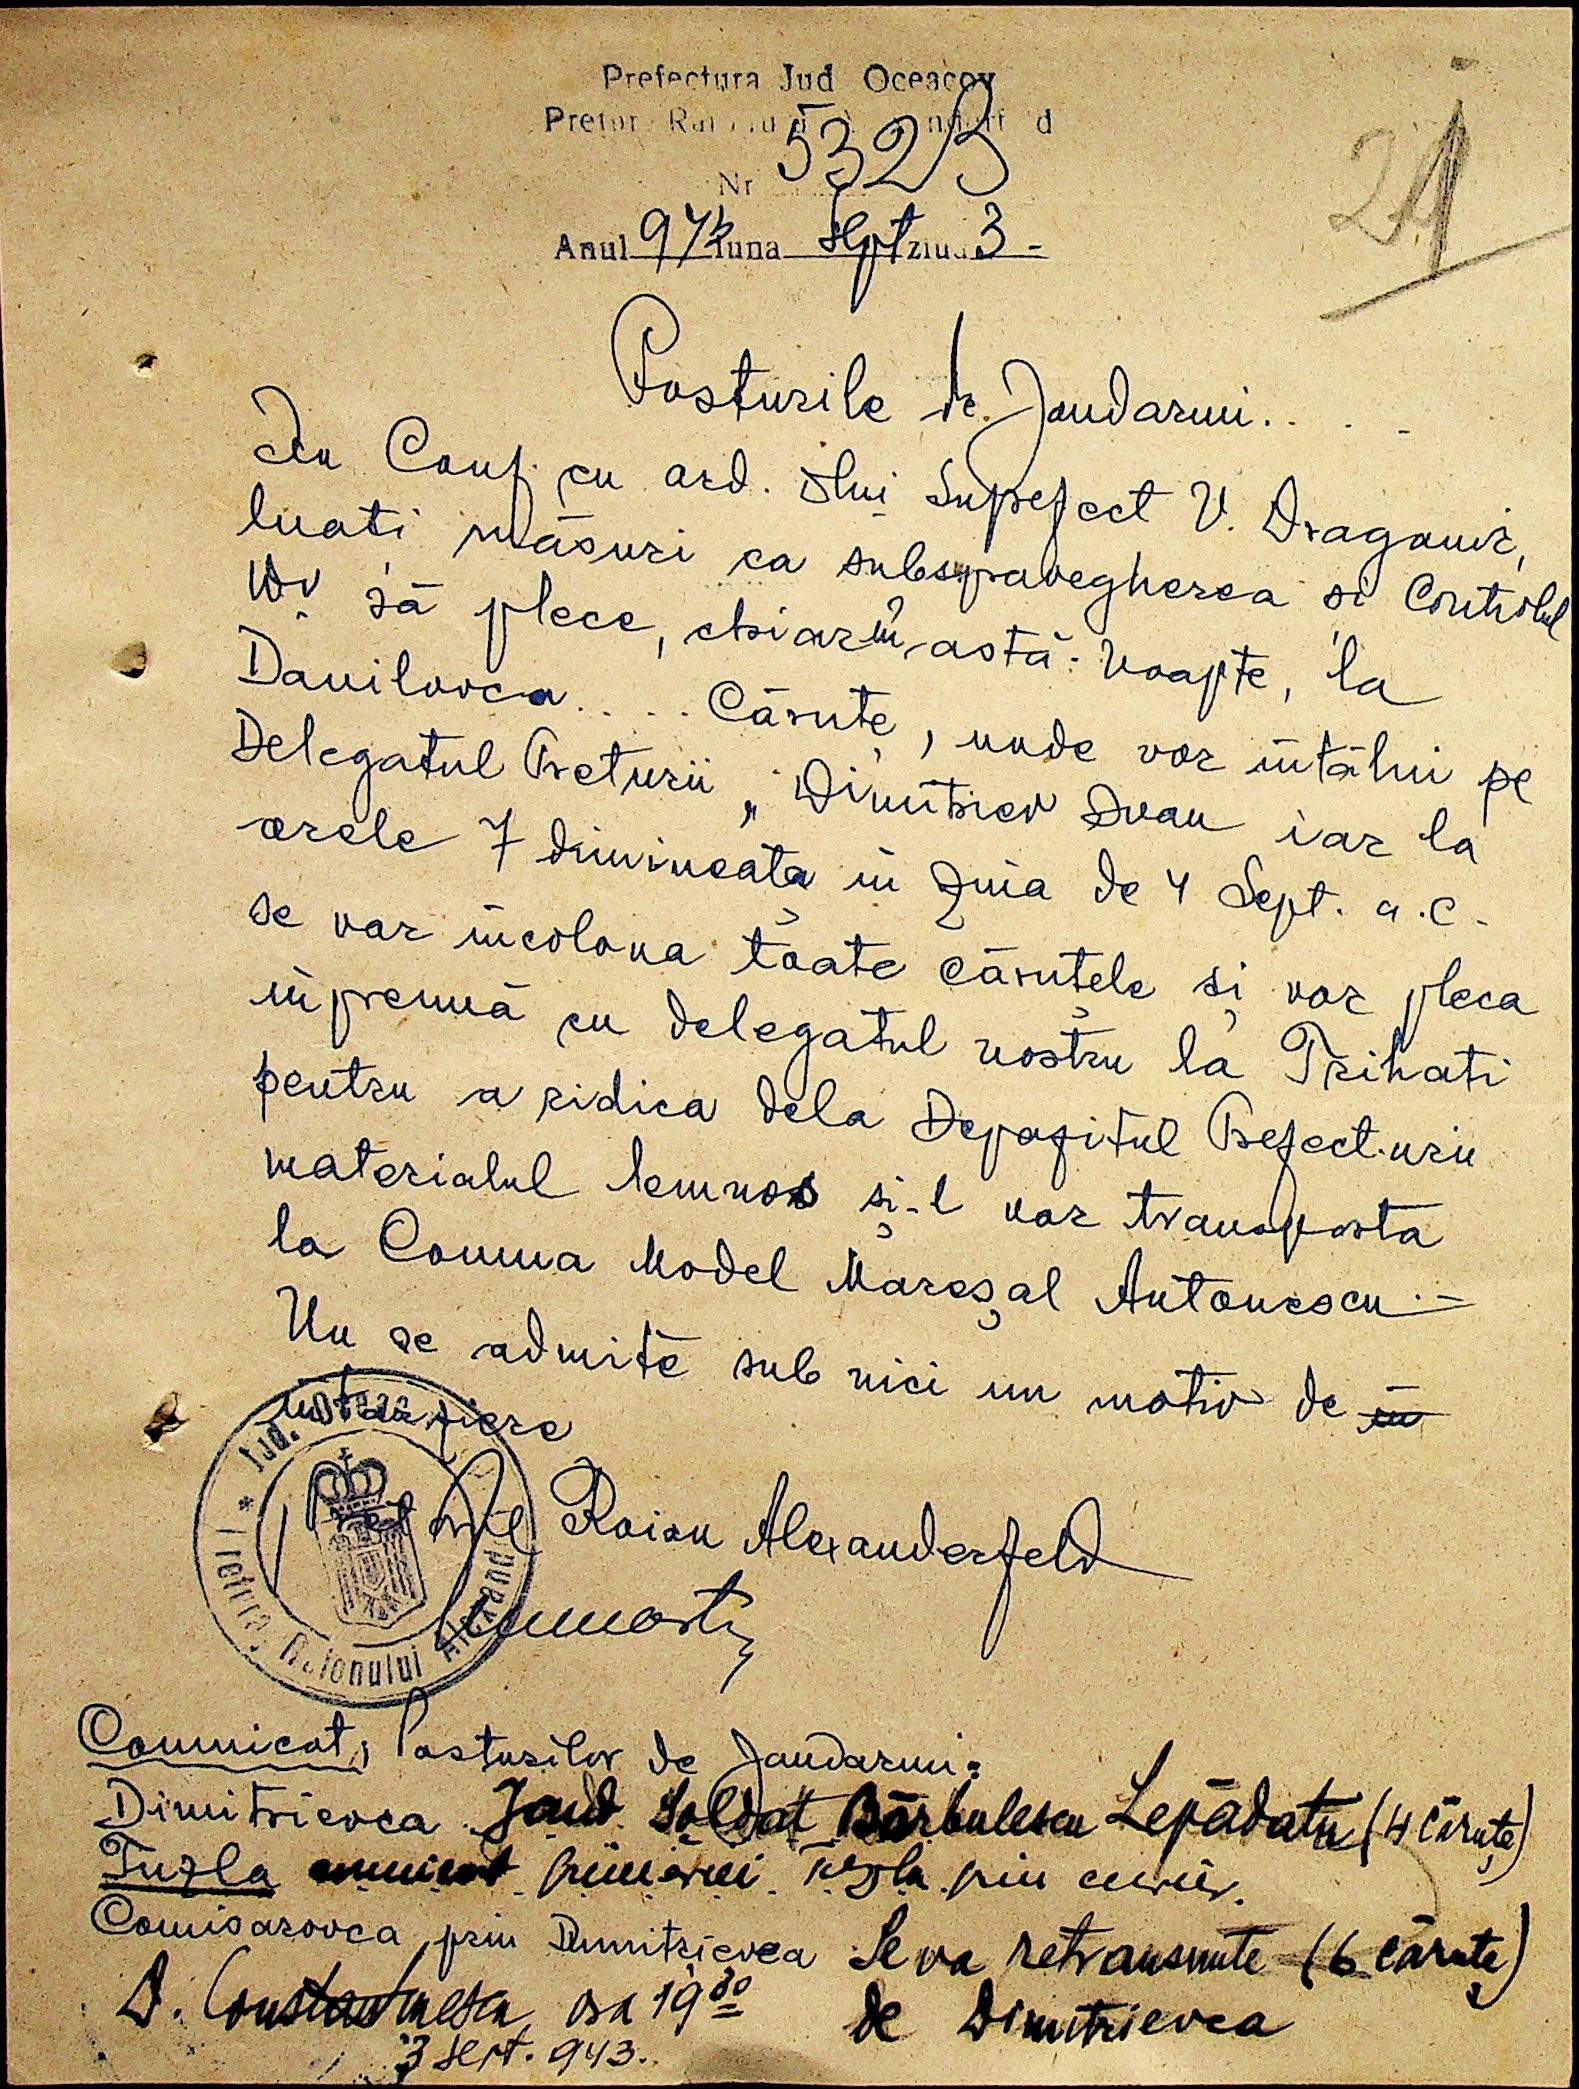 Prefectura Jud Oceacov
Nr 5323
21
Anul 943 luna Sept ziua 3 -
Posturile de Jandarmi. . . -
In Conf. cu ord. Dlui Suprefect V. Dragomir,
luati măsuri ca subsupravegherea și Controlul
Dv să plece, chiar în astă-noapte, la
Danilovca . . . . Căruțe, unde vor întâlni pe
Delegatul Preturii „ Dimitriev Ivan iar la
orele 7 dimineața în ziua de 4 Sept. a.c.-
se vor încolona toate căruțele și vor pleca
împreună cu delegatul nostru la Trihati
pentru a ridica dela Depozitul Prefecturii
materialul lemnos și-l vor transporta
la Comuna Model Mareșal Antonescu.-
Nu se admite sub nici un motiv de în
întârziere
Pretorul Raion Alexanderfeld
Jud.
Pretura Raionului Alexand
Comunicat, Posturilor de Jandarmi:
Dimitrievca Jand Soldat Bărbulescu Lepădatu (4 căruțe)
Tuzla comunicat primăriei Tuzla prin curier.
Comisarovca prin Dimitrievca Se va retransmite (6 căruțe)
D. Constantinescu ora 19 30 de Dimitrievca
3 Sept. 943.